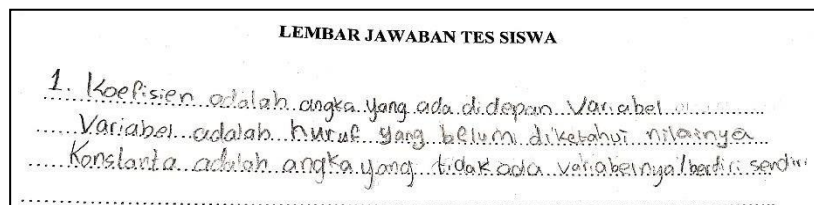 LEMBAR JAWABAN TES SISWA
1. Koefisien adalah angka yang ada didepan Variabel
Variabel adalah huruf yang belum diketahui nilainya
Konstanta adalah angka yang tidak ada variabelnya/berdiri sendiri